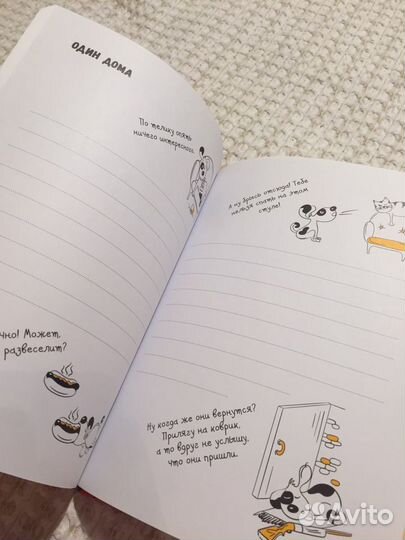 ОДИН ДОМА
По телику опять
ничего интересного.
чно! Может,
развеселит?
А ну брысь отсюда! Тебе
нельзя спать на этом
стуле!
Ну когда же они вернутся?
Прилягу на коврик,
а то вдруг не услышу,
что они пришли.
Avito